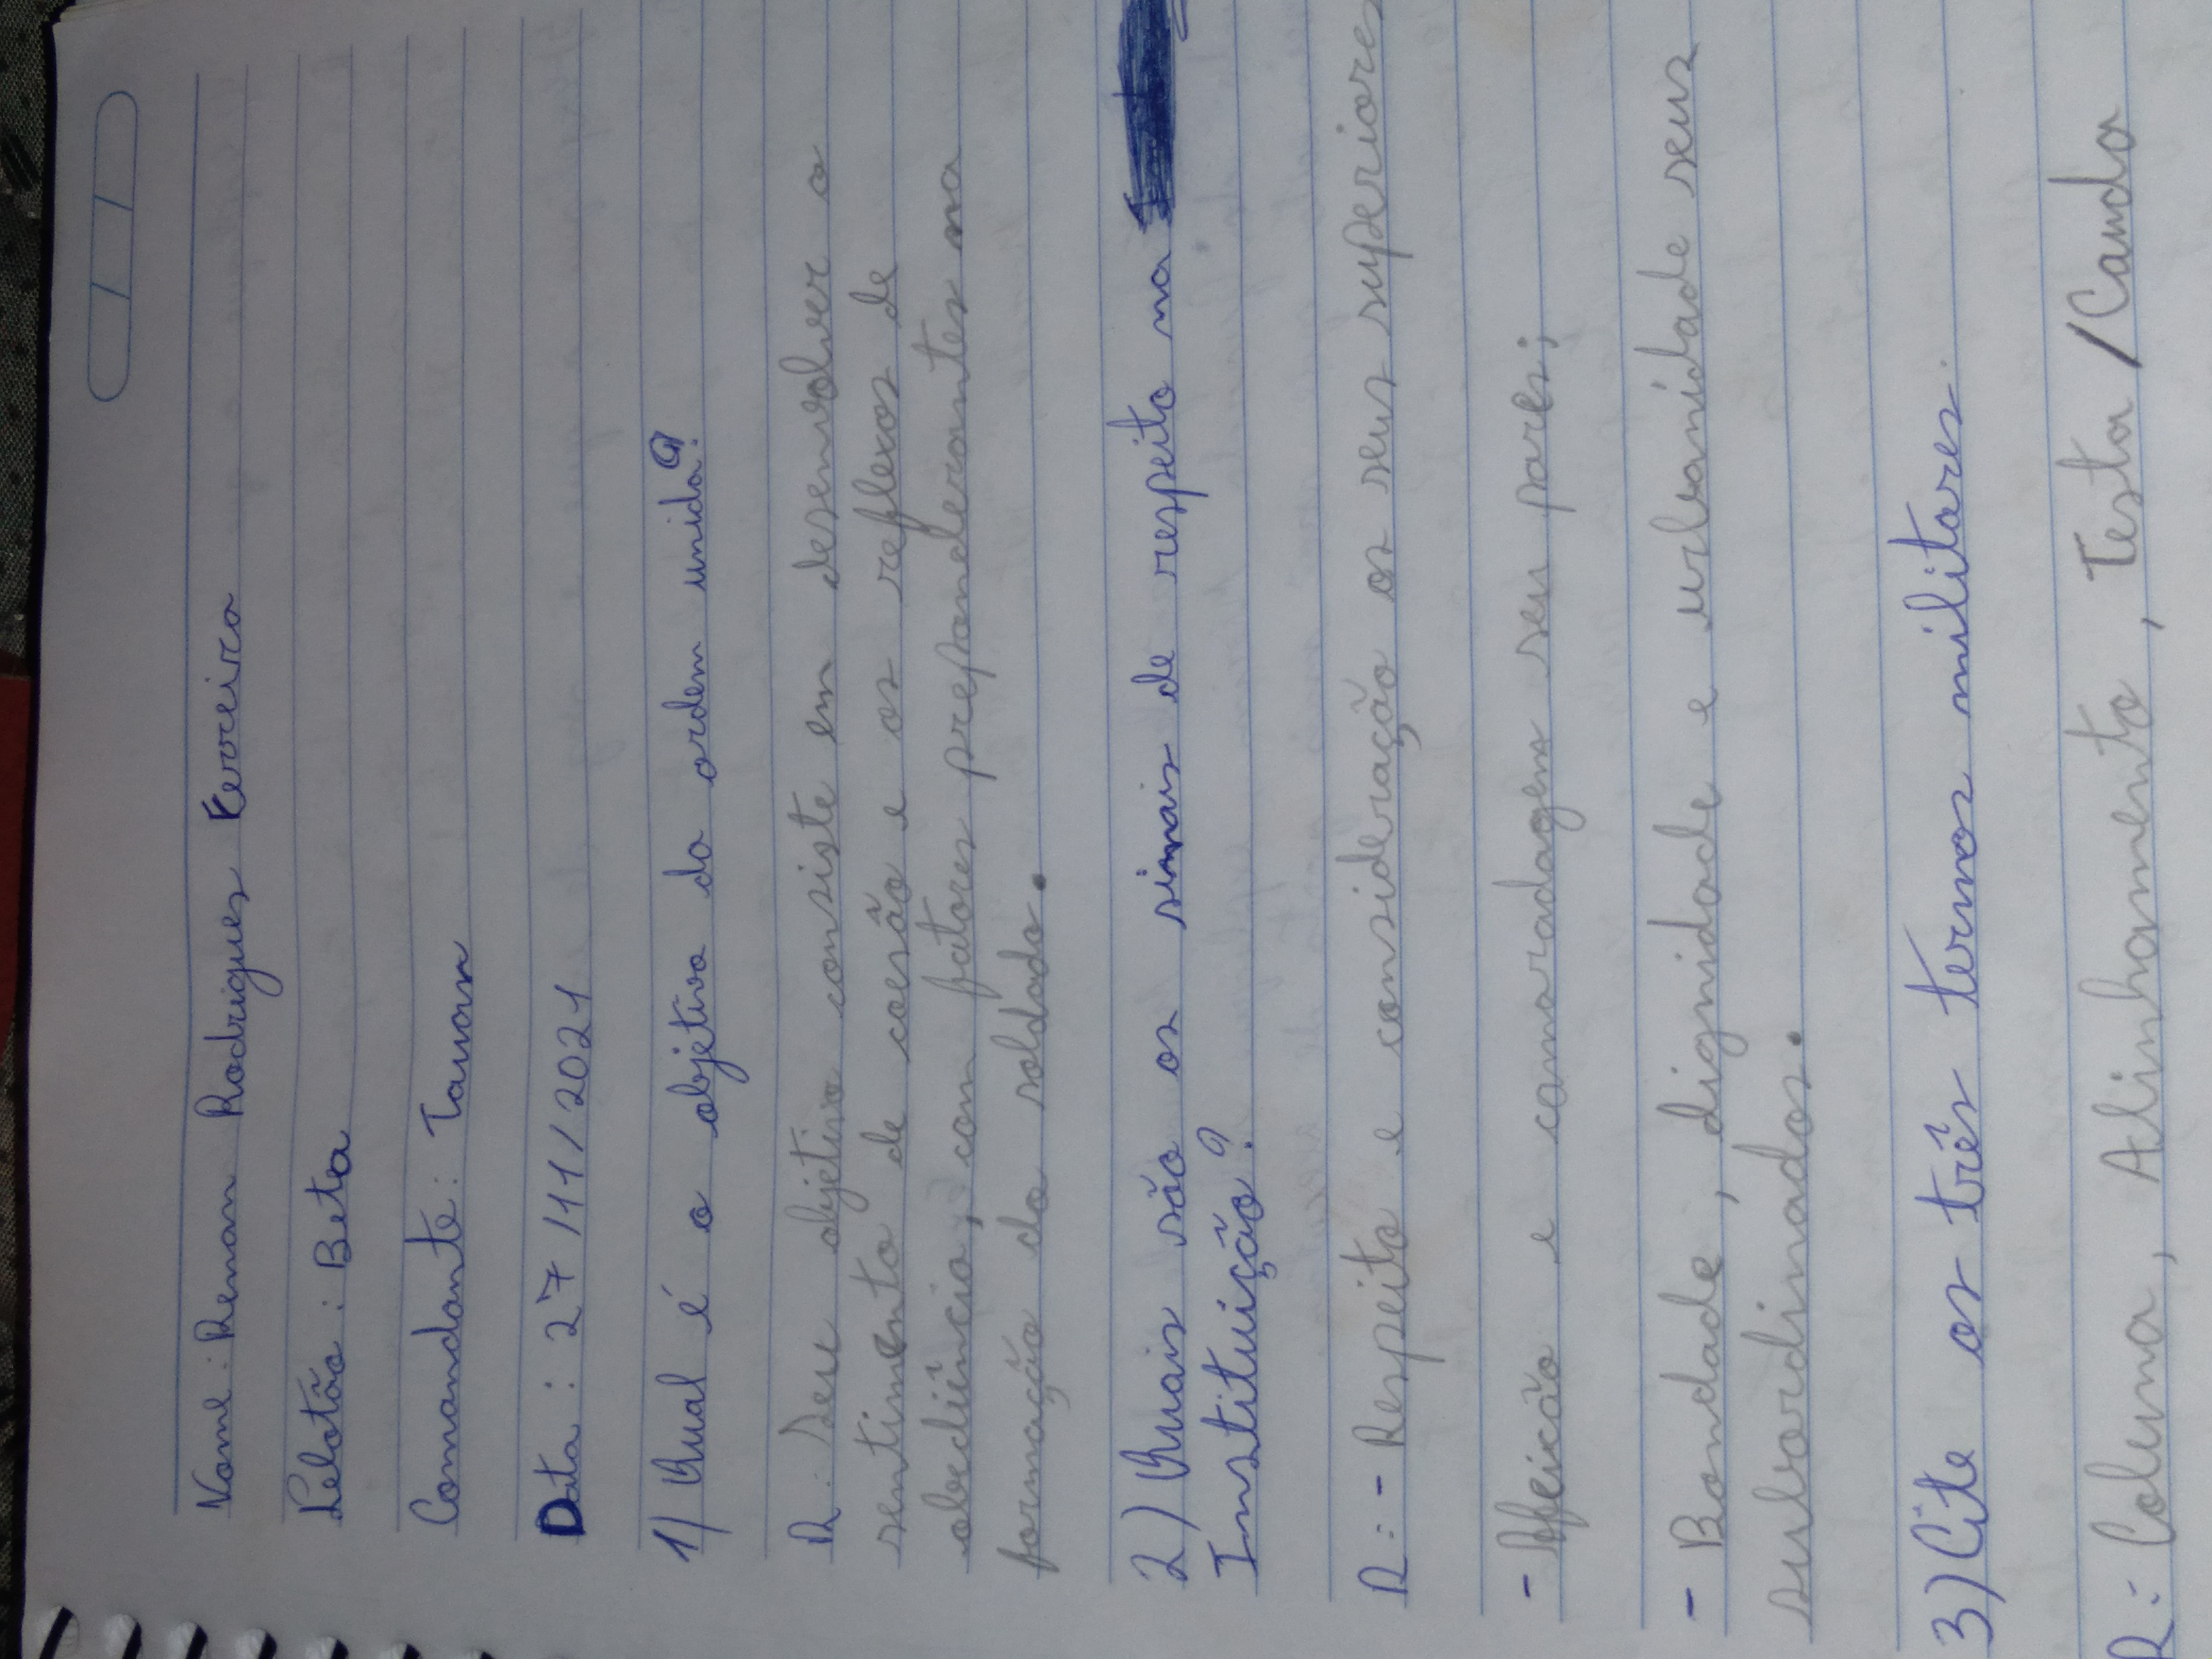 Nome: Renan Rodrigues Ferreira
Pelotão: Beta
Comandante: Tauan
Data: 27/11/2021
1) Qual é o objetivo da ordem unida?
R: Seu objetivo consiste em desenvolver o
sentimento de coesão e os reflexos de
obediência, com fatores preponderantes na
formação do soldado.
2) Quais são os sinais de respeito na
Instituição?
R: - Respeito e consideração os seus superiores
- Afeicão e camaradagem seu pares;
- Bondade, dignidade e urbanidade seus
subordinados.
3) Cite os três termos militares.
R: Coluna, Alinhamento, Testa /Cauda